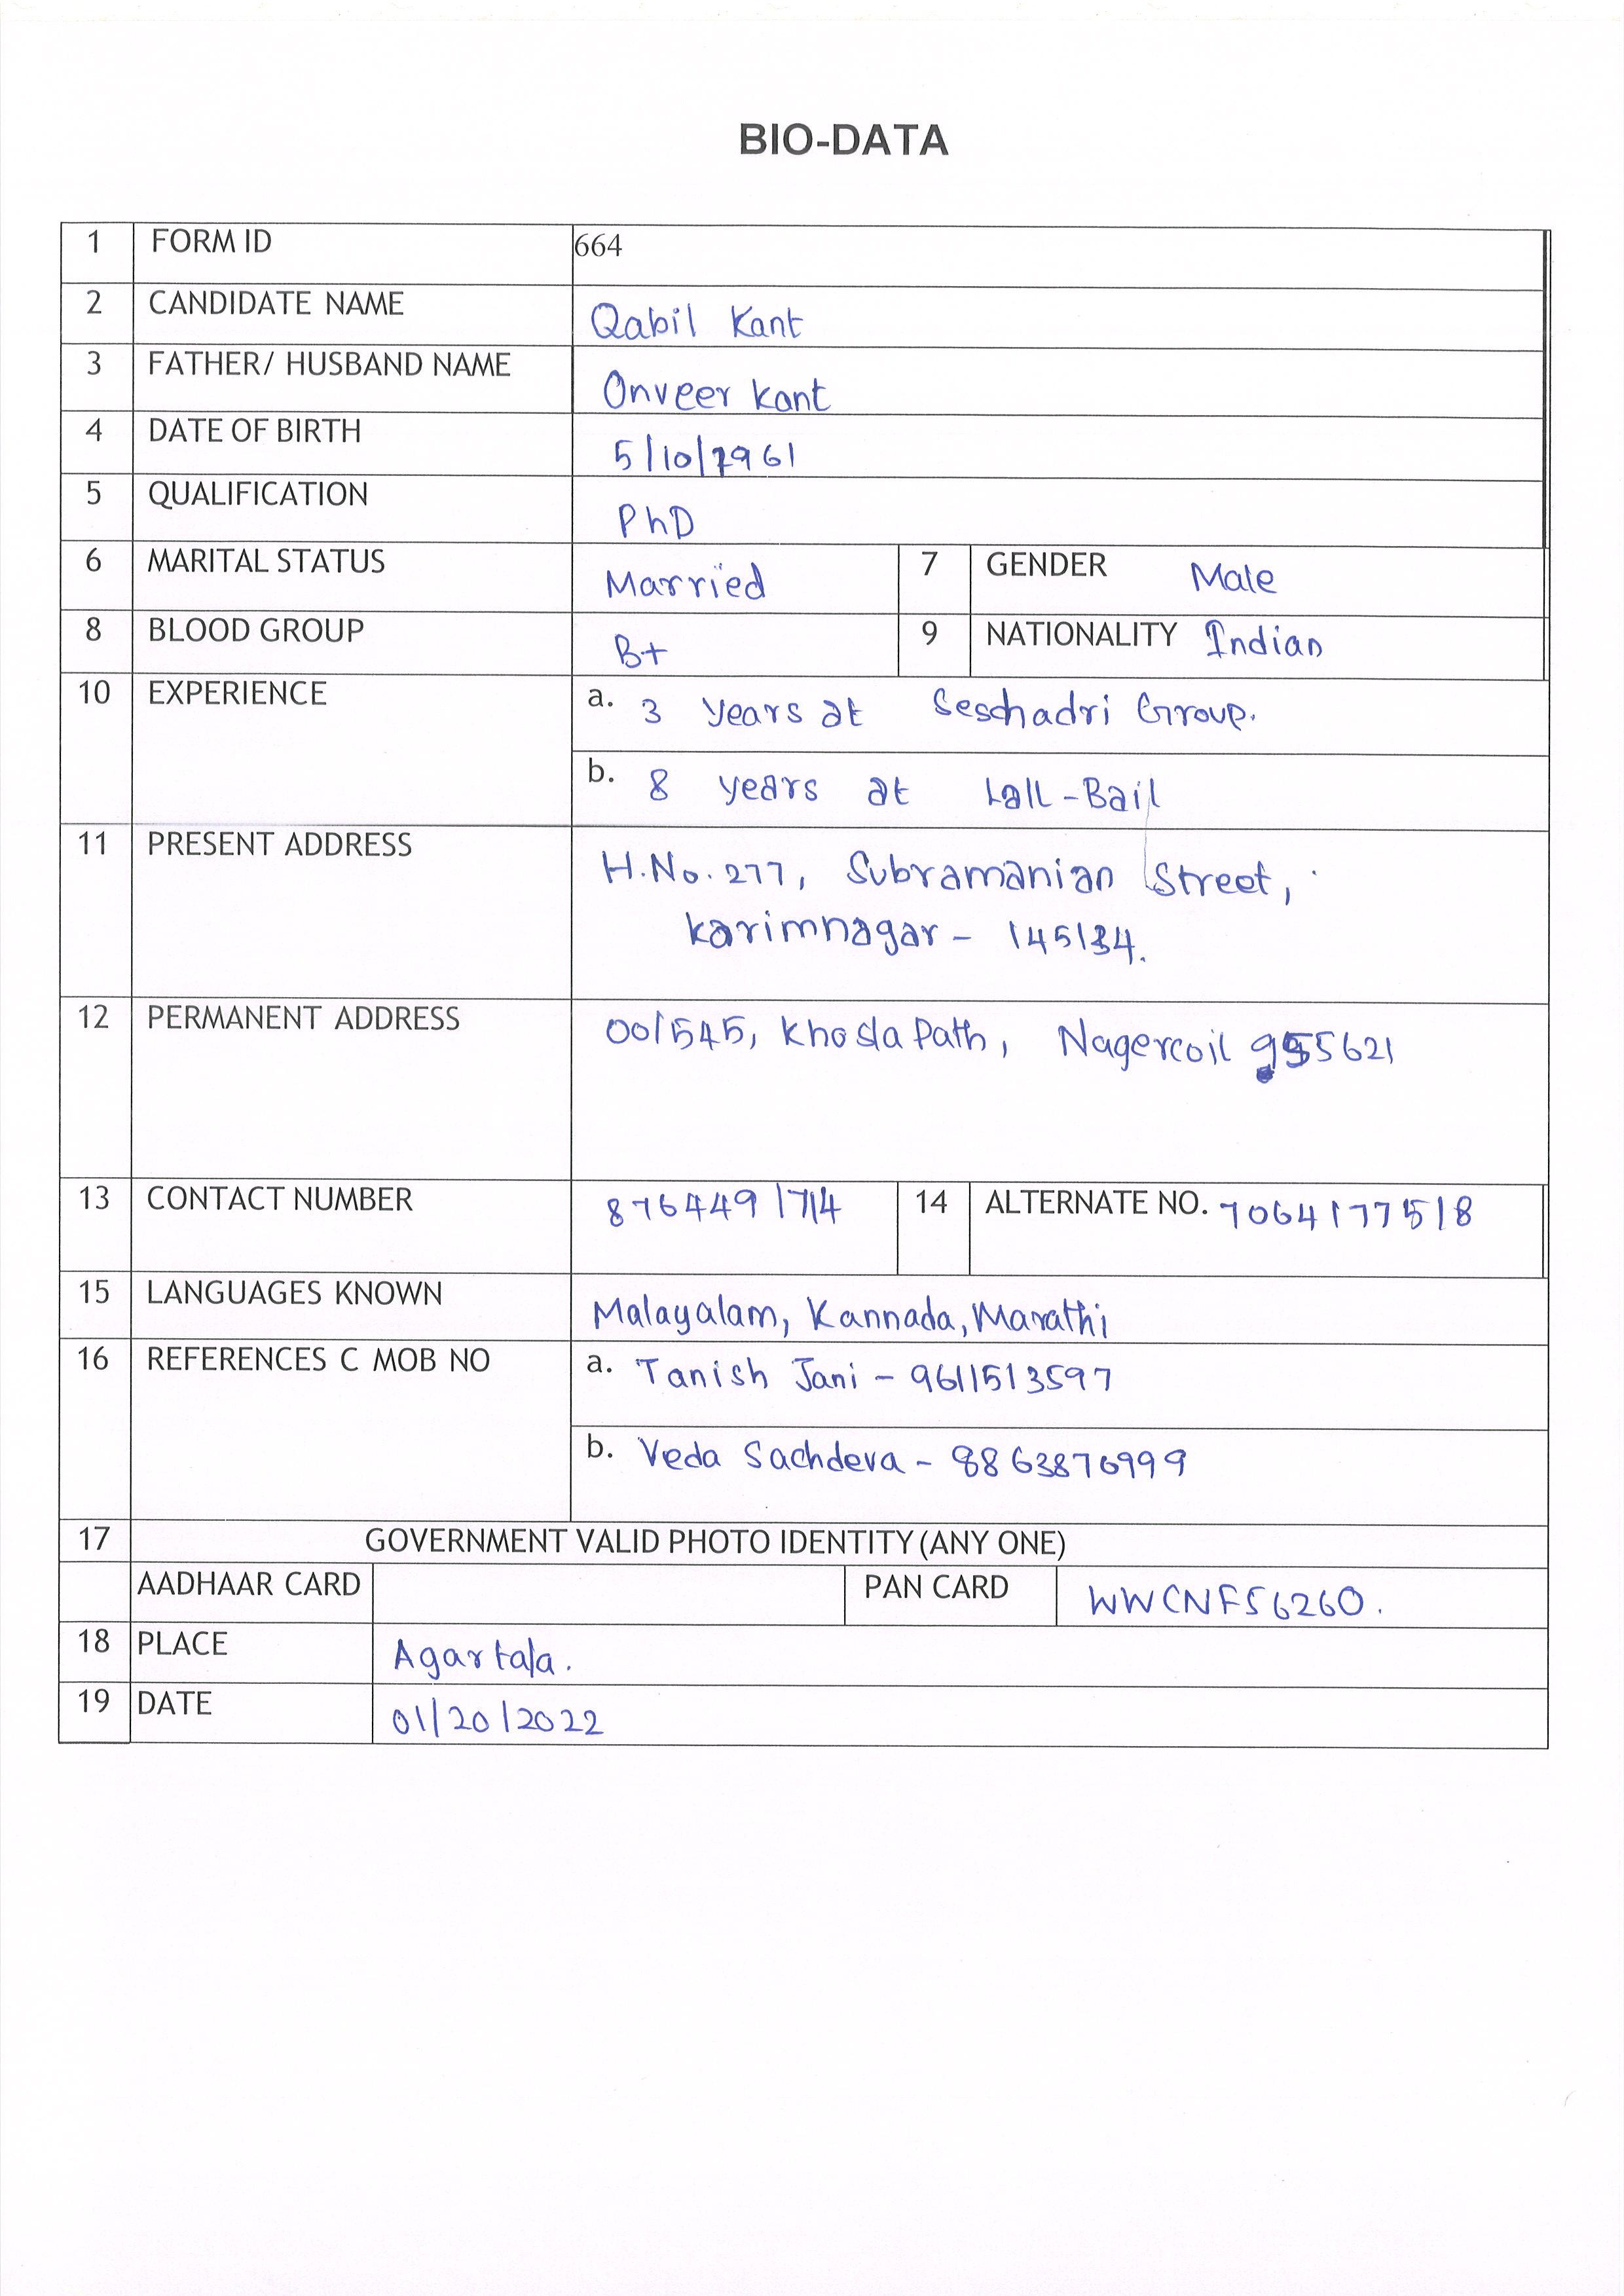 BIO-DATA
1 FORM ID 664
2 CANDIDATE NAME Qabil Kant
3 FATHER/ HUSBAND NAME Onveer Kant
4 DATE OF BIRTH 5/10/1961
5 QUALIFICATION PhD
6 MARITAL STATUS Married 7 GENDER Male
8 BLOOD GROUP B+ 9 NATIONALITY Indian
10 EXPERIENCE a. 3 years at Seschadri Group.
b. 8 years at Lall-Bail
11 PRESENT ADDRESS H.No. 277, Subramanian Street,
Karimnagar - 145134.
12 PERMANENT ADDRESS 00/545, Khosla Path, Nagercoil 955621
13 CONTACT NUMBER 8764491714 14 ALTERNATE NO. 7064177518
15 LANGUAGES KNOWN Malayalam, Kannada, Marathi
16 REFERENCES C MOB NO a. Tanish Jani - 9611513597
b. Veda Sachdeva - 8863876999
17 GOVERNMENT VALID PHOTO IDENTITY (ANY ONE)
AADHAAR CARD PAN CARD WWCNF5626O.
18 PLACE Agartala.
19 DATE 01/20/2022